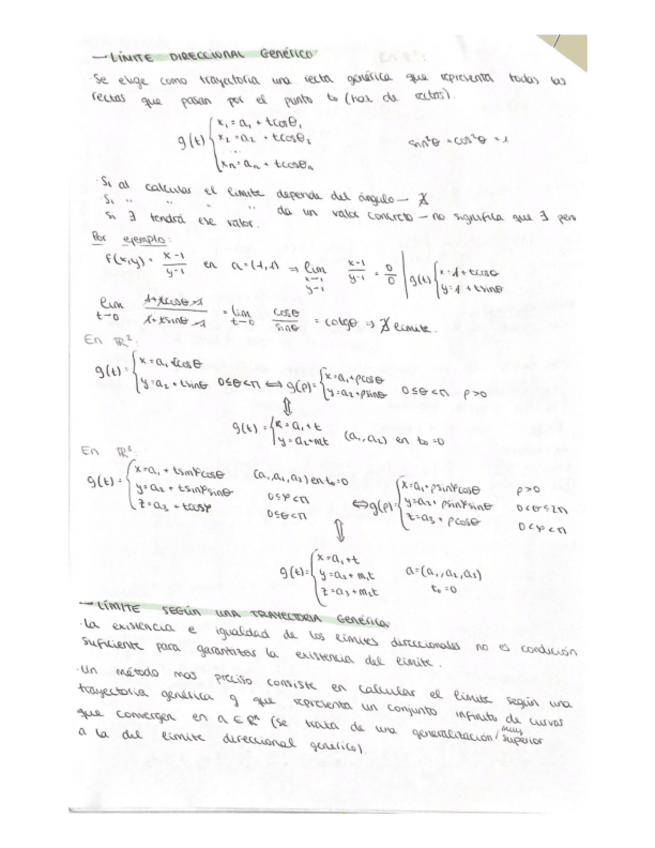 — LÍMITE DIRECCIONAL GENÉRICO
· Se elige como trayectoria una recta genérica que representa todas las
rectas que pasan por el punto to (haz de rectas).
g(t) { x₁ = a₁ + tcosθ₁
x₂ = a₂ + tcosθ₂ sin²θ + cos²θ = 1
...
xn = an + tcosθn
· Si al calcular el límite depende del ángulo — ∄
· Si " " " " da un valor concreto — no significa que ∃ pero
si ∃ tendrá ese valor.
Por ejemplo:
f(x,y) = x-1/y-1 en a = (1,1) ⇒ lim x→1 y→1 x-1/y-1 = 0/0 | g(t) { x = 1 + tcosθ
y = 1 + tsinθ
lim t→0 1+tcosθ-1/1+tsinθ-1 = lim t→0 cosθ/sinθ = cotgθ ⇒ ∄ límite.
En ℝ²:
g(t) = { x = a₁ + tcosθ
y = a₂ + tsinθ 0≤θ<π ⟺ g(ρ) = { x = a₁ + ρcosθ
y = a₂ + ρsinθ 0≤θ<π ρ>0
⇕
g(t) = { x = a₁ + t
y = a₂ + mt (a₁, a₂) en to = 0
En ℝ³:
g(t) = { x = a₁ + tsinφcosθ (a₁, a₂, a₃) en to = 0
y = a₂ + tsinφsinθ 0≤φ<π
z = a₃ + tcosφ 0≤θ<π
⟺ g(ρ) = { x = a₁ + ρsinφcosθ ρ>0
y = a₂ + ρsinφsinθ 0<θ≤2π
z = a₃ + ρcosθ 0<φ<π
⇕
g(t) = { x = a₁ + t
y = a₂ + m₁t a = (a₁, a₂, a₃)
z = a₃ + m₂t to = 0
— LÍMITE SEGÚN UNA TRAYECTORIA GENÉRICA
· La existencia e igualdad de los límites direccionales no es condición
suficiente para garantizar la existencia del límite.
· Un método mas preciso consiste en calcular el límite según una
trayectoria genérica g que representa un conjunto infinito de curvas
que convergen en a ∈ ℝⁿ (se trata de una generalización / muy superior
a la del límite direccional genérico).